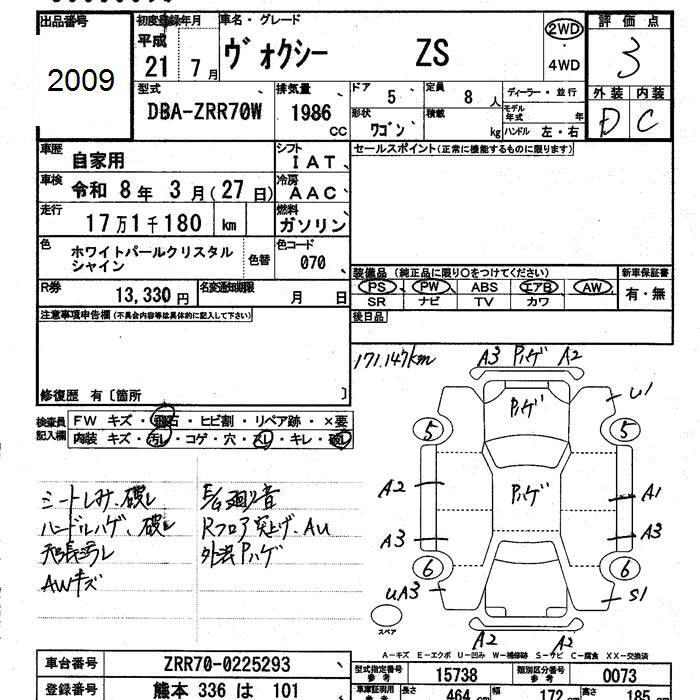 出品番号 初度登録年月 車名・グレード 評価点
2009 平成 21 7月 ヴォクシー ZS 2WD 4WD 3
型式 排気量 ドア 5 定員 8 人 ディーラー・並行 外装 内装
DBA-ZRR70W 1986 cc 形状 ワゴン 積載 kg モデル年式 年 D C
ハンドル 左・右
車歴 自家用 シフト IAT セールスポイント(正常に機能するものに限ります)
車検 令和 8年 3月(27日) 冷房 AAC
走行 17万1千180 km 燃料 ガソリン
色 ホワイトパールクリスタルシャイン 色替 色コード 070
装備品(純正品に限り○をつけてください) 新車保証書
R券 13,330円 名変通知期限 月 日 PS PW ABS エアB AW 有・無
SR ナビ TV カワ
注意事項申告欄(不具合内容等は具体的に記入して下さい) 後日品
171,147km A3 Pハゲ A2
修復歴 有〔箇所 〕
Pハゲ U1
検査員記入欄 FW キズ・飛石・ヒビ割・リペア跡・×要 5 5
内装 キズ・汚レ・コゲ・穴・スレ・キレ・破レ
シートしみ、破レ
A2 Pハゲ A1
ハンドルハゲ、破レ Rフロア突上げ、AU
A3 A3
外装Pハゲ
6 6
AWキズ UA3 S1
スペア A2 A2
A-キズ E-エクボ U-凹み W-補修跡 S-サビ C-腐食 XX-交換済
車台番号 ZRR70-0225293 型式指定番号 15738 類別区分番号 0073
登録番号 熊本 336 は 101 車庫証明用参考 長さ 464 cm 幅 172 cm 高さ 185 cm